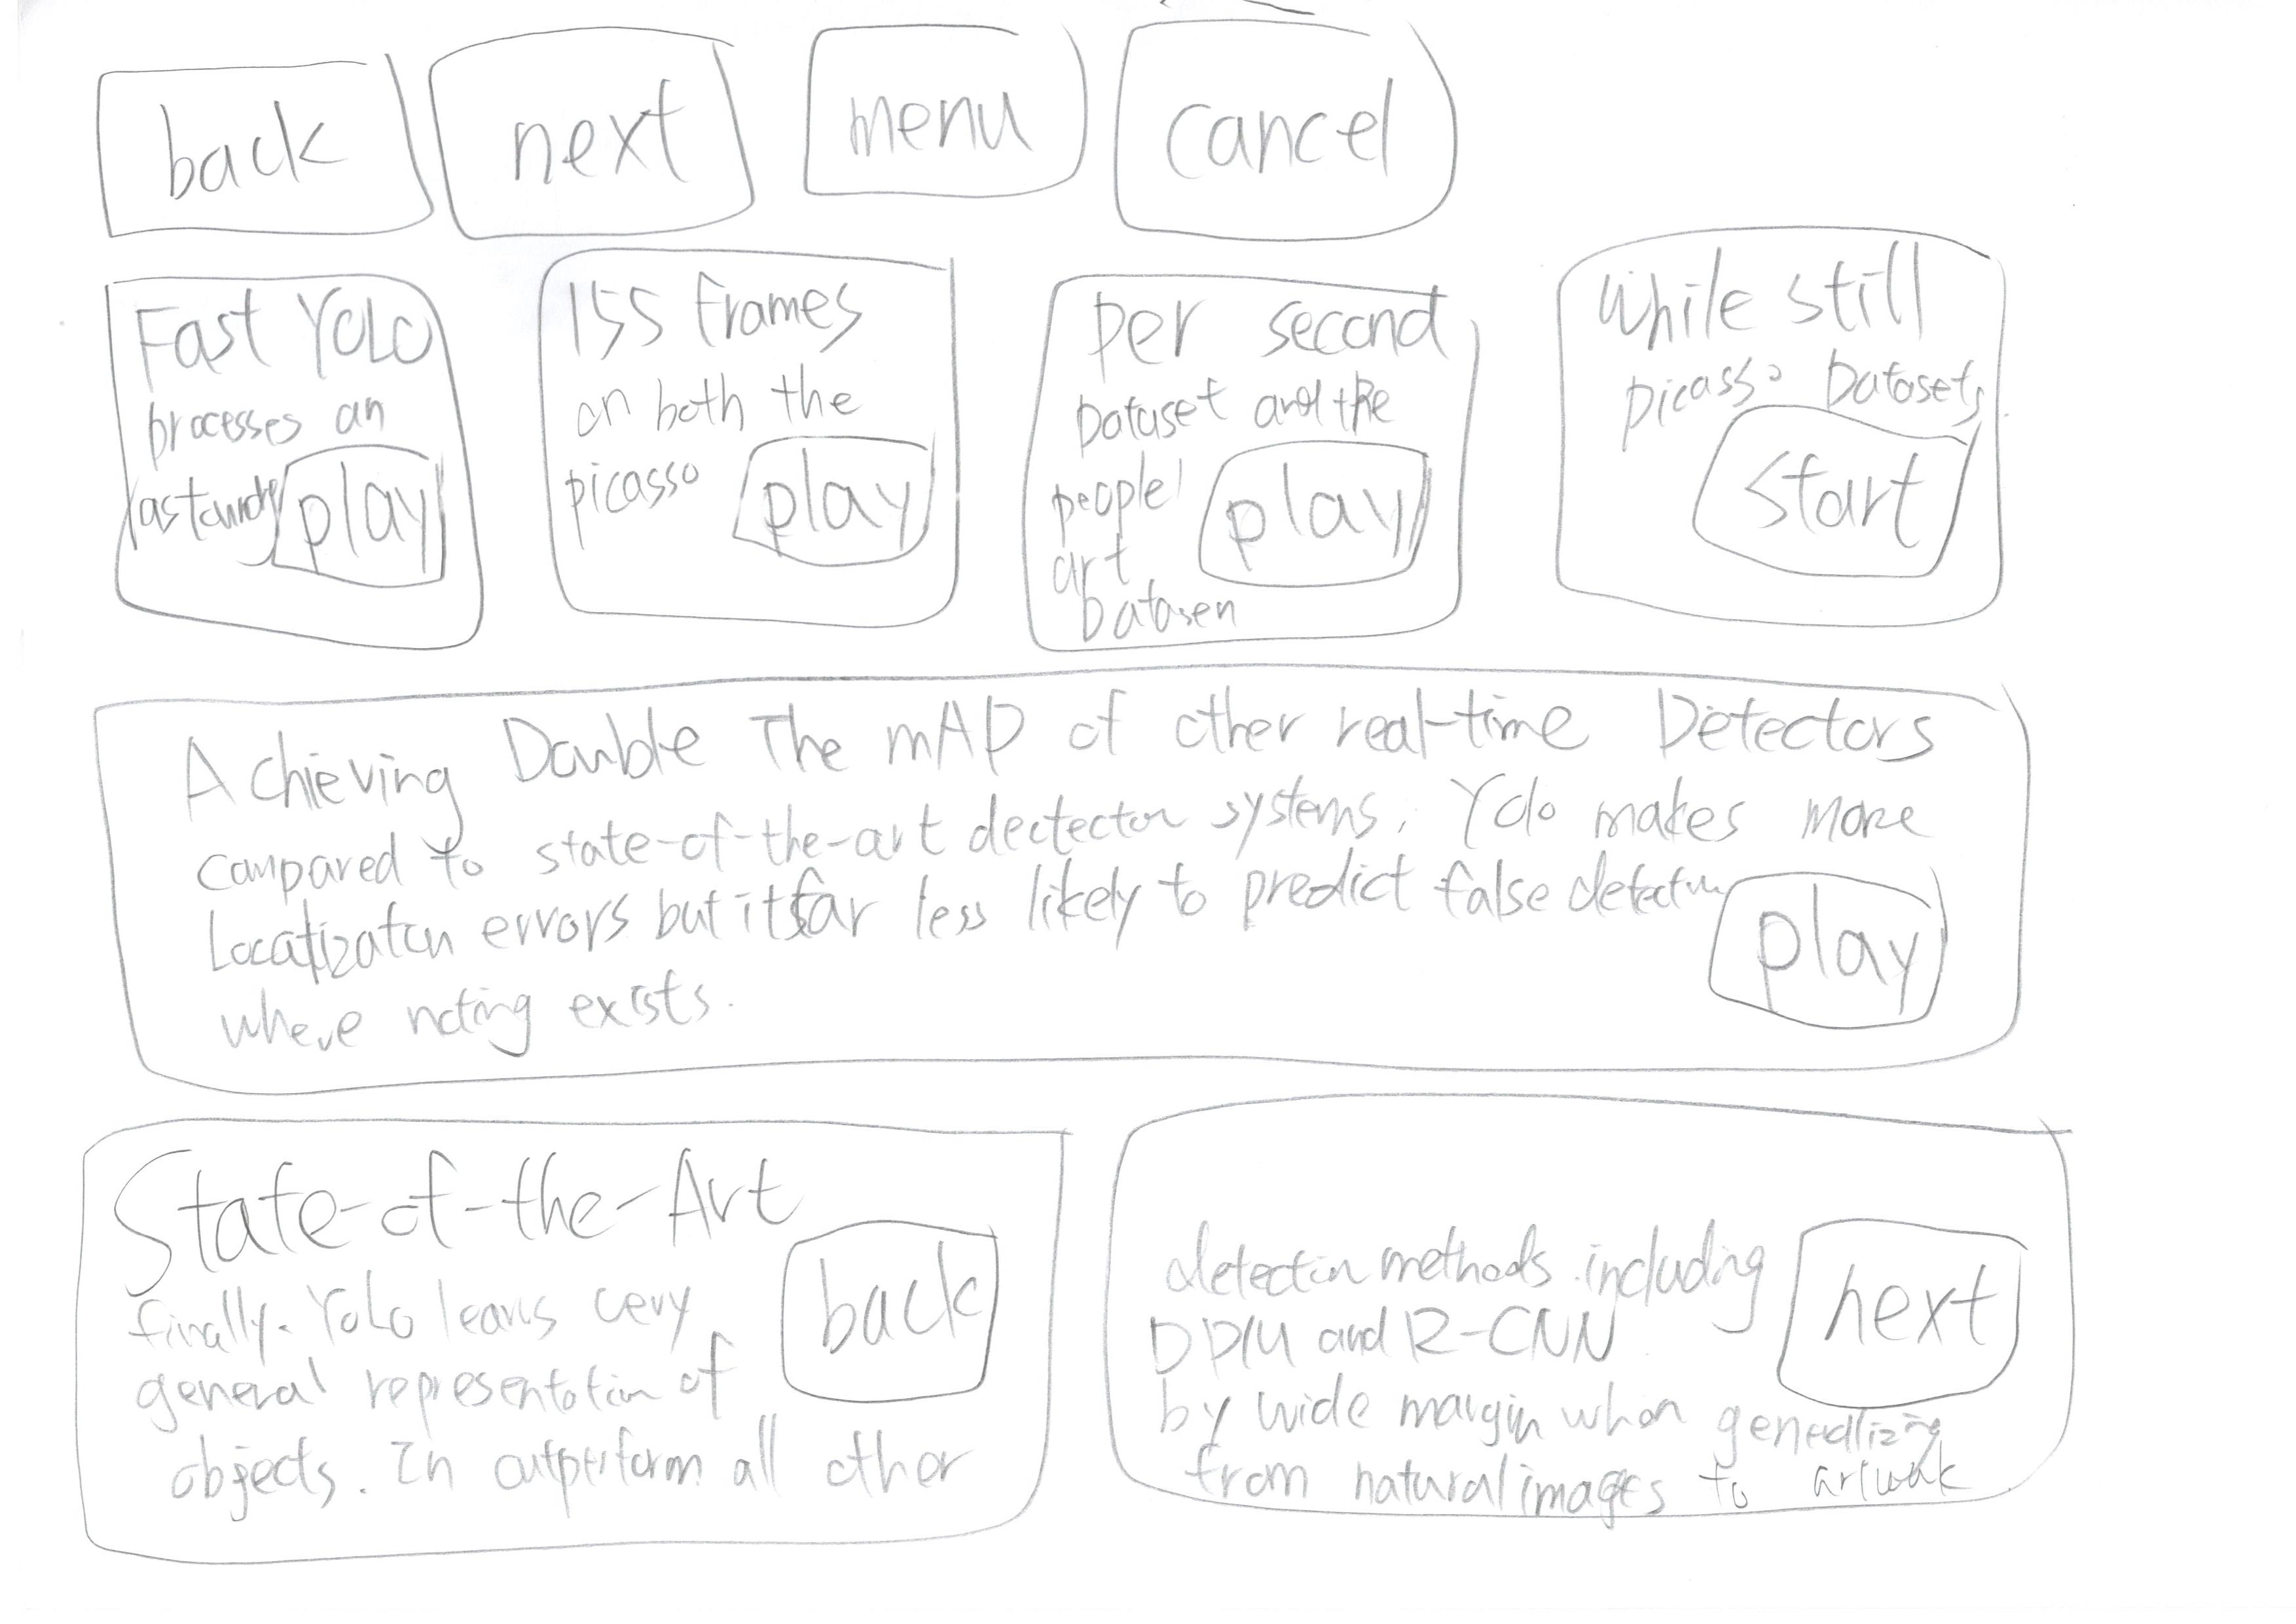 back
next
menu
cancel
Fast YOLO
processes an
play
155 frames
on both the
picasso
play
Per second
Dataset and the
people
art
Datasen
play
While still
picasso Datasets.
start
Achieving Double The mAP of other real-time Detectors
compared to state-of-the-art dectector systems, Yolo makes more
Localization errors but its far less likely to predict false detection
where noting exists.
play
State-of-the-Art
finally. YOLO learns very
general representation of
objects. In outperform all other
back
detection methods. including
DPM and R-CNN
by wide margin when generalizing
from natural images to artwork
next